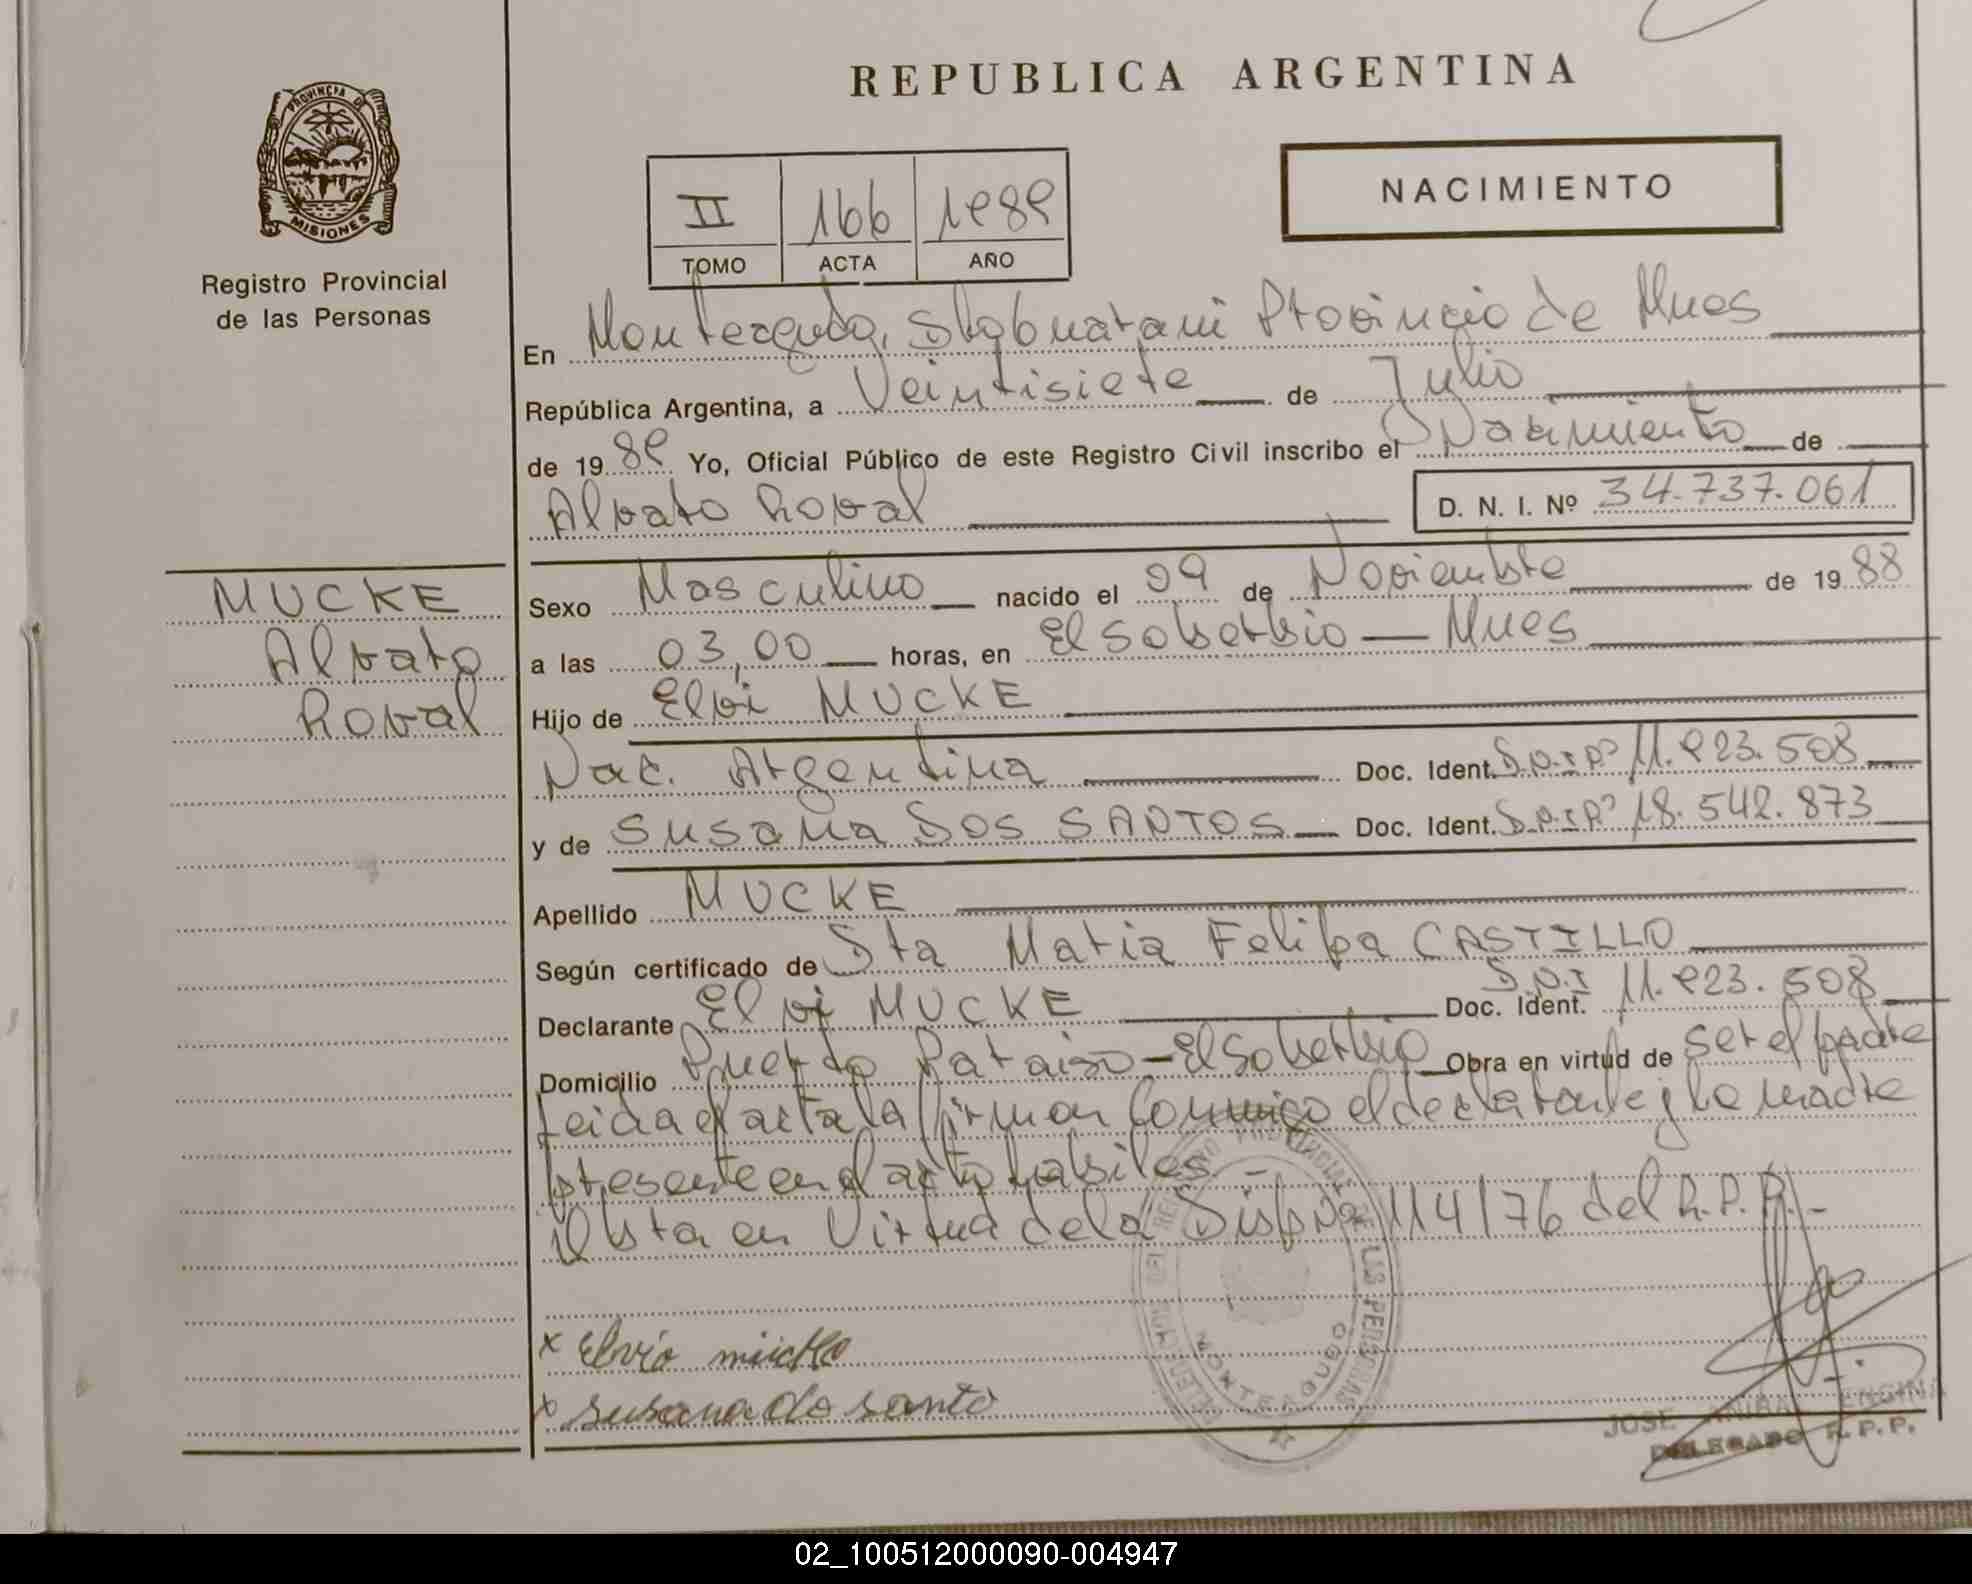 REPUBLICA ARGENTINA
PROVINCIA DE
MISIONES
Registro Provincial
de las Personas
II 166 1989
TOMO ACTA AÑO
NACIMIENTO
En Monteagudo, Provincia de Mnes
República Argentina, a Veintisiete de Julio
de 1989 Yo, Oficial Público de este Registro Civil inscribo el Nacimiento de
Alvaro Roval
D. N. I. Nº 34.737.061
MUCKE
Alvaro
Roval
Sexo Masculino nacido el 09 de Noviembre de 1988
a las 03,00 horas, en El Soberbio — Mnes
Hijo de Elvi MUCKE
Nac. Argentina Doc. Ident. D.N.I Nº 11.923.508
y de Susana DOS SANTOS Doc. Ident. D.N.I Nº 18.542.873
Apellido MUCKE
Según certificado de Sra Maria Felipa CASTILLO
Declarante Elvi MUCKE Doc. Ident. D.N.I 11.923.508
Domicilio Puerto Paraiso - El Soberbio Obra en virtud de ser el padre
Leida el acta la firman conmigo el declarante y la madre
presente en el acto habiles. -
Obra en Virtud de la Disp Nº 114/76 del R.P.P. -
x Elvio mücke
x susana do santo
REGISTRO PROVINCIAL DE LAS PERSONAS
MONTEAGUDO
JOSE ANIBAL
DELEGADO R. P. P.
02_100512000090-004947